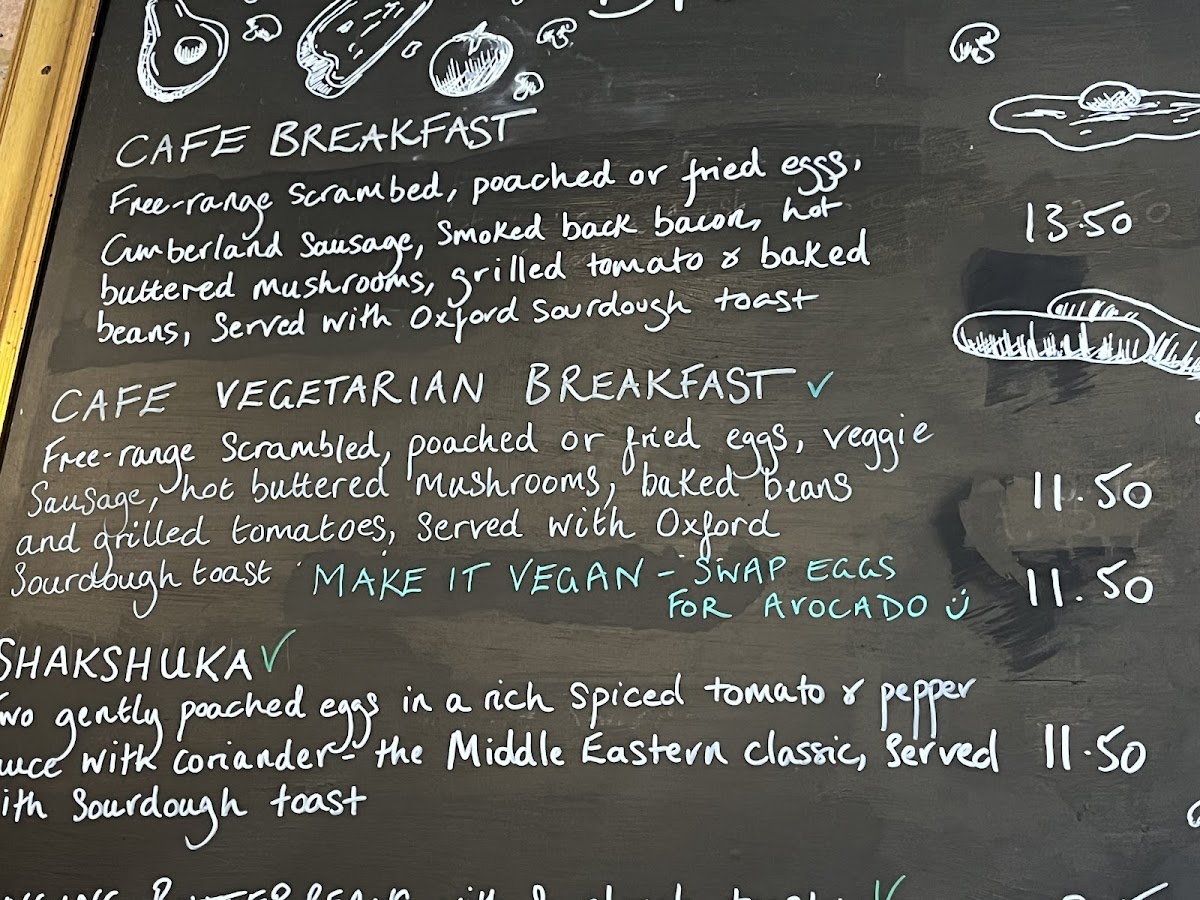 CAFE BREAKFAST
Free-range Scrambed, poached or fried eggs,
Cumberland Sausage, Smoked back bacon, hot
buttered mushrooms, grilled tomato & baked
beans, Served with Oxford Sourdough toast
13.50
CAFE VEGETARIAN BREAKFAST ✓
Free-range Scrambled, poached or fried eggs, veggie
Sausage, hot buttered mushrooms, baked beans
and grilled tomatoes, Served with Oxford
Sourdough toast
11.50
MAKE IT VEGAN - SWAP EGGS
FOR AVOCADO
11.50
SHAKSHUKA ✓
gently poached eggs in a rich Spiced tomato & pepper
with coriander - the Middle Eastern classic, Served
Sourdough toast
11.50